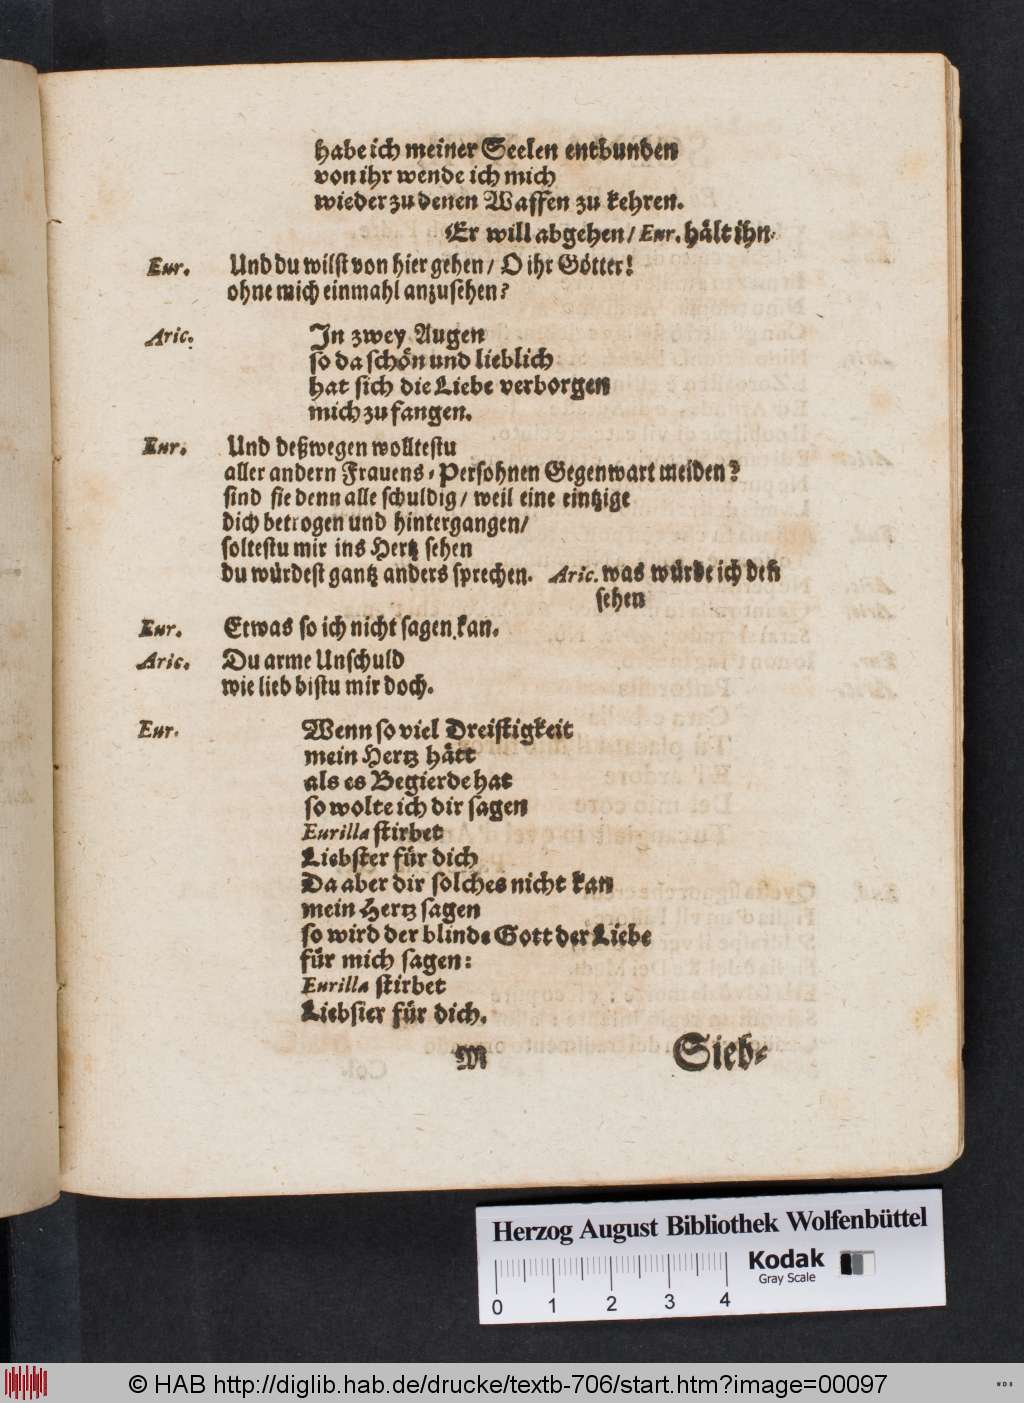 habe ich meiner Seelen entbunden
von ihr wende ich mich
wieder zu denen Waffen zu kehren.
Er will abgehen / Eur. hält ihn.
Eur. Und du wilst von hier gehen / O ihr Götter!
ohne mich einmahl anzusehen?
Aric. In zwey Augen
so da schön und lieblich
hat sich die Liebe verborgen
mich zu fangen.
Eur. Und deßwegen wolltestu
aller andern Frauens-Persohnen Gegenwart meiden?
sind sie denn alle schuldig / weil eine eintzige
dich betrogen und hintergangen /
soltestu mir ins Hertz sehen
du würdest gantz anders sprechen. Aric. was würde ich deñ
sehen
Eur. Etwas so ich nicht sagen kan.
Aric. Du arme Unschuld
wie lieb bistu mir doch.
Eur. Wenn so viel Dreistigkeit
mein Hertz hätt
als es Begierde hat
so wolte ich dir sagen
Eurilla stirbet
Liebster für dich
Da aber dir solches nicht kan
mein Hertz sagen
so wird der blinde Gott der Liebe
für mich sagen:
Eurilla stirbet
Liebster für dich.
M Sieb-
Herzog August Bibliothek Wolfenbüttel
Kodak
Gray Scale
0 1 2 3 4
© HAB http://diglib.hab.de/drucke/textb-706/start.htm?image=00097